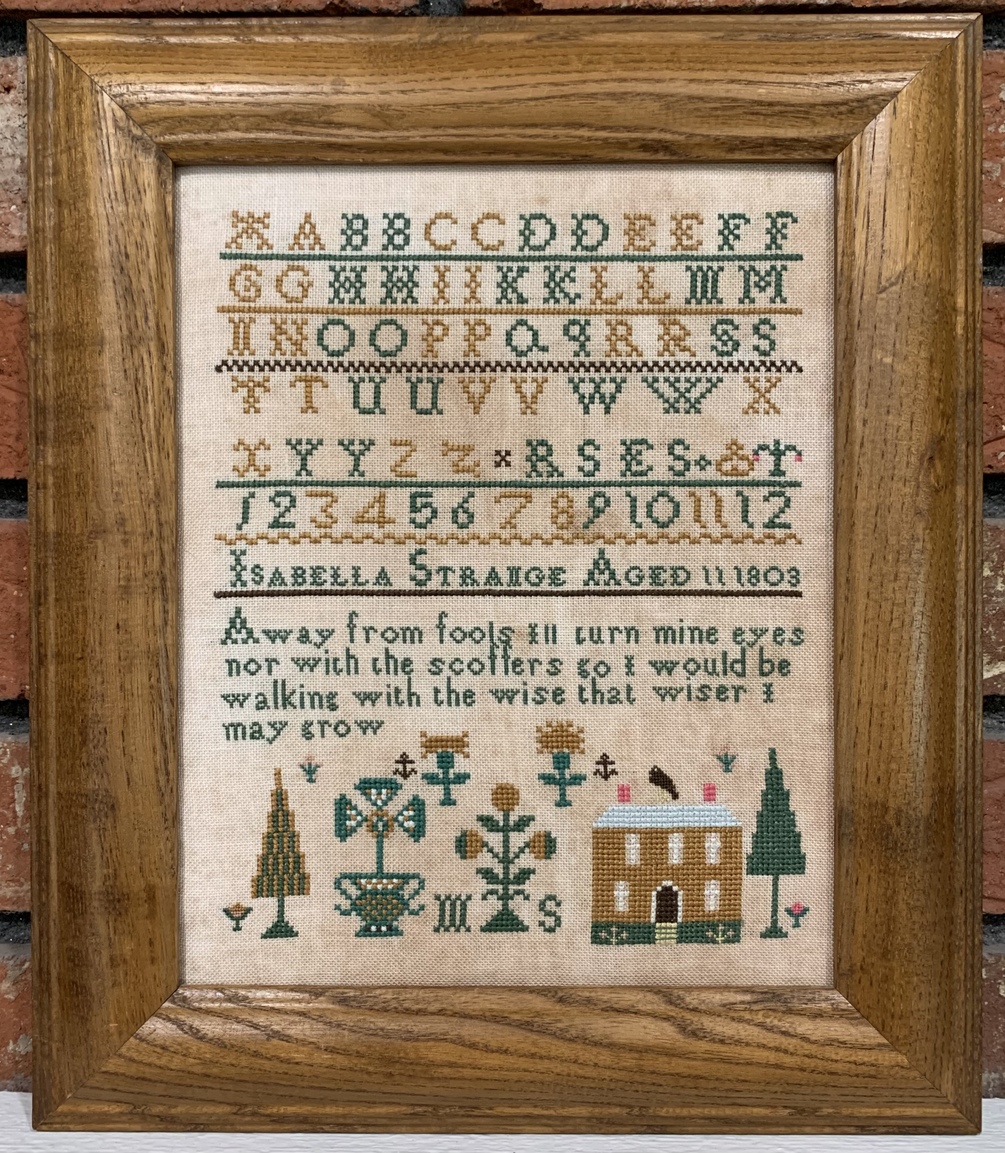 A A B B C C D D E E F F
G G H H I I K K L L M M
N N O O P P Q q R R S S
T T U U V V W W X
X Y Y Z Z x R S E S + &
1 2 3 4 5 6 7 8 9 10 11 12
Isabella Strange Aged 11 1803
Away from fools Ill turn mine eyes
nor with the scoffers go I would be
walking with the wise that wiser I
may grow
M S